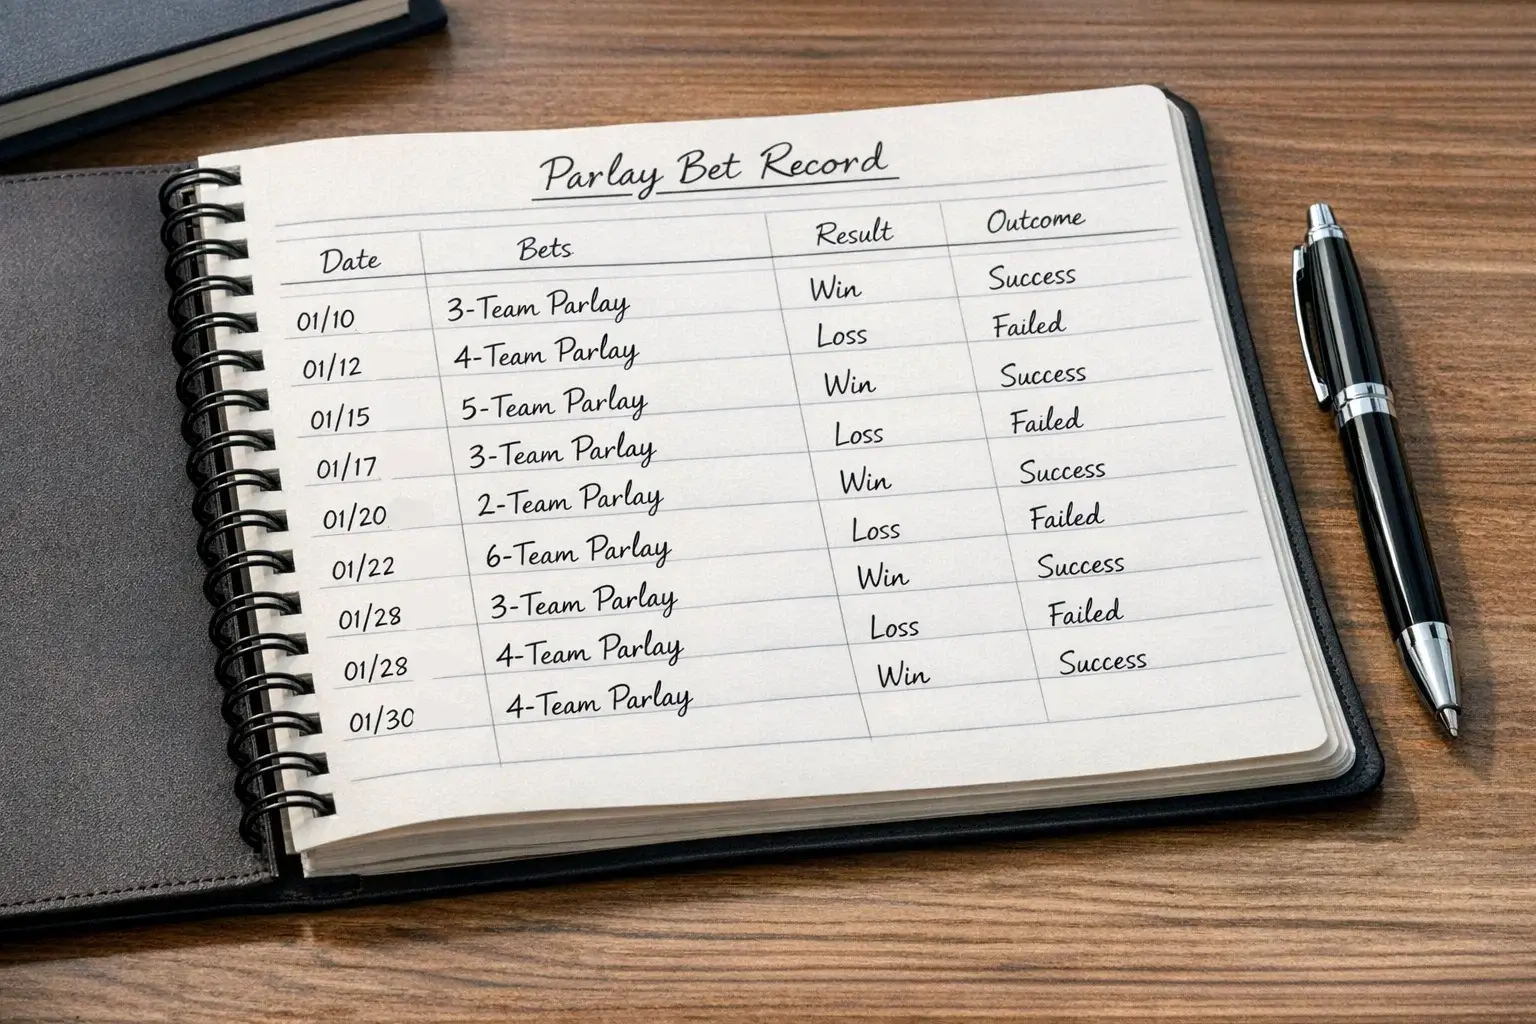 Parlay Bet Record
Date Bets Result Outcome
01/10 3-Team Parlay Win Success
01/12 4-Team Parlay Loss Failed
01/15 5-Team Parlay Win Success
01/17 3-Team Parlay Loss Failed
01/20 2-Team Parlay Win Success
01/22 6-Team Parlay Loss Failed
01/28 3-Team Parlay Win Success
01/28 4-Team Parlay Loss Failed
01/30 4-Team Parlay Win Success